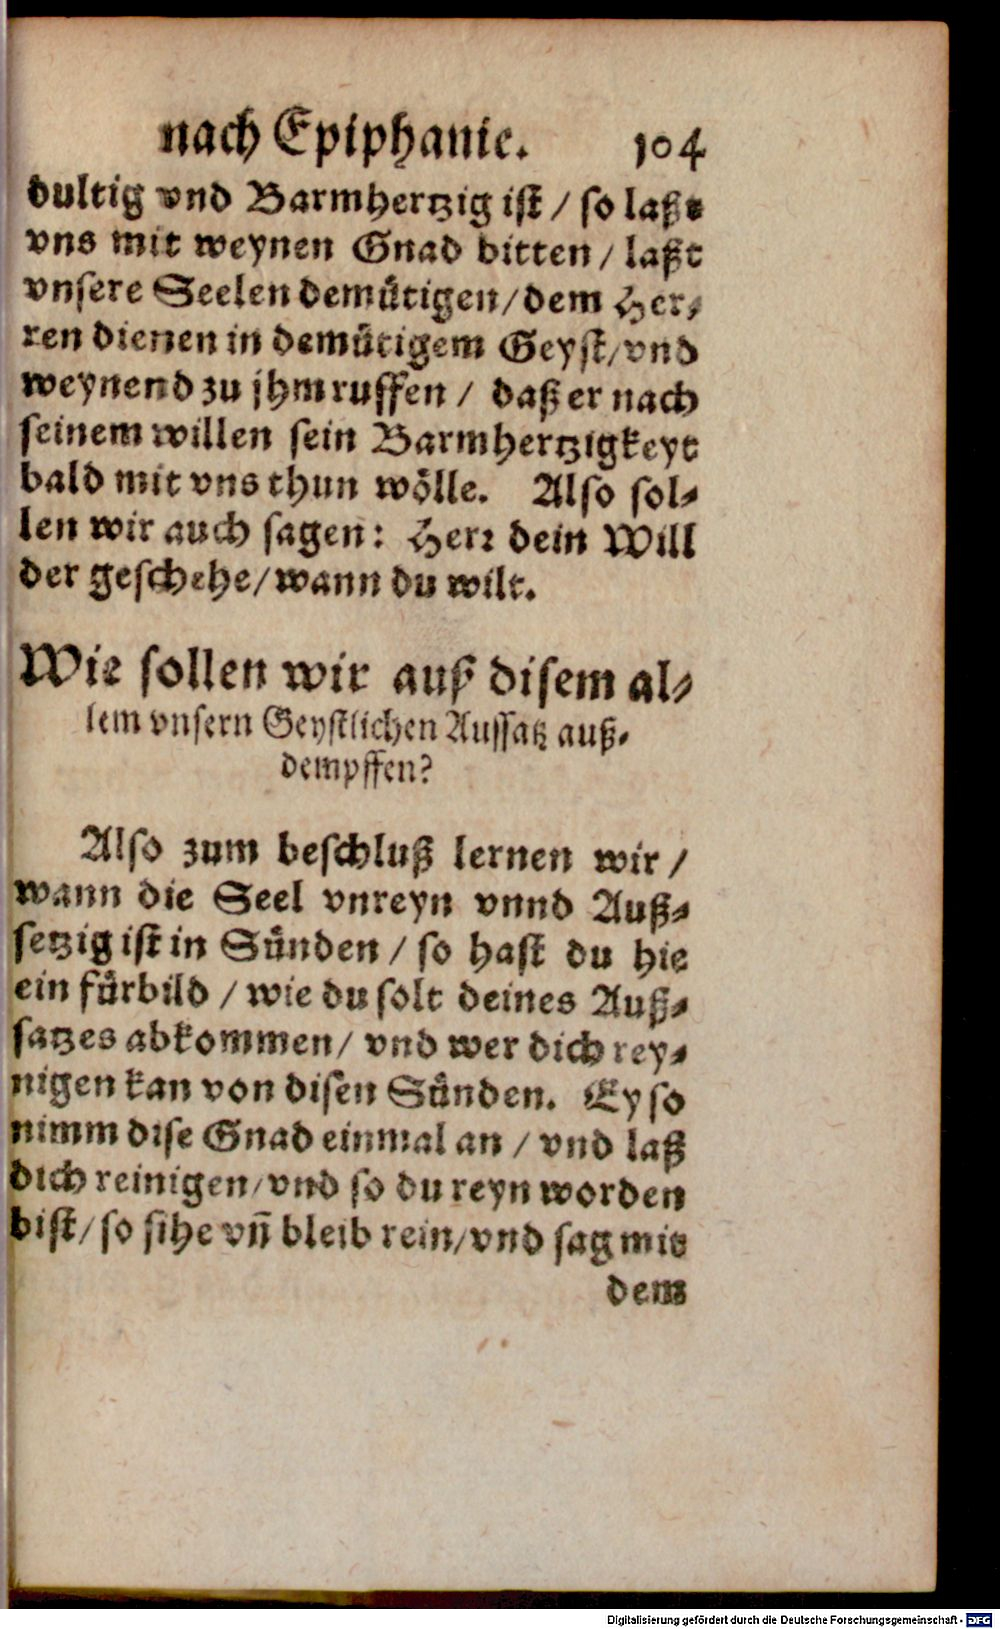 nach Epiphanie. 104
dultig vnd Barmhertzig ist / so laßt
vns mit weynen Gnad bitten / laßt
vnsere Seelen demuͤtigen / dem Her⸗
ren dienen in demuͤtigem Geyst / vnd
weynend zu jhm ruffen / daß er nach
seinem willen sein Barmhertzigkeyt
bald mit vns thun woͤlle. Also sol⸗
len wir auch sagen: Herr dein Will
der geschehe / wann du wilt.
Wie sollen wir auß disem al⸗
lem vnsern Geystlichen Aussatz auß⸗
dempffen?
Also zum beschluß lernen wir /
wann die Seel vnreyn vnnd Auß⸗
setzig ist in Suͤnden / so hast du hie
ein fuͤrbild / wie du solt deines Auß⸗
satzes abkommen / vnd wer dich rey⸗
nigen kan von disen Suͤnden. Ey so
nimm dise Gnad einmal an / vnd laß
dich reinigen / vnd so du reyn worden
bist / so sihe vñ bleib rein / vnd sag mit
dem
Digitalisierung gefördert durch die Deutsche Forschungsgemeinschaft - DFG